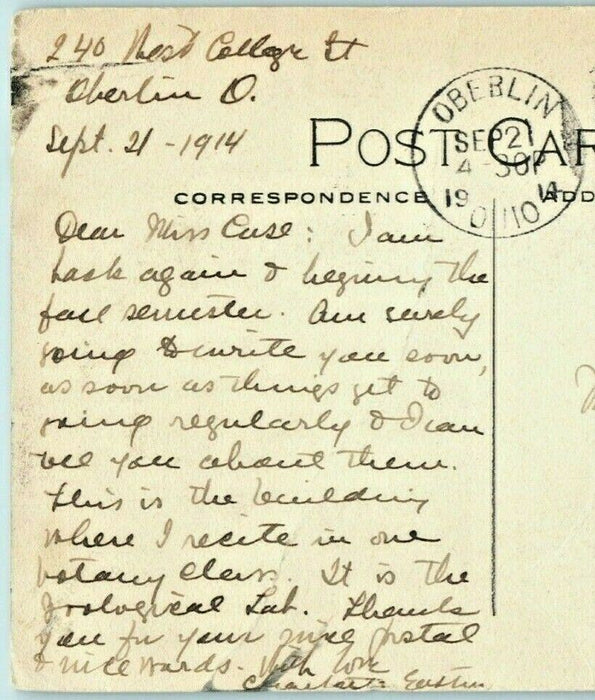 240 West College St
Oberlin O.
Sept. 21 - 1914
POST CAR
CORRESPONDENCE
ADD
OBERLIN
SEP 21
4 - 30P
19 14
OHIO
Dear Miss Case: I am
back again & beginning the
fall semester. Am surely
going to write you soon,
as soon as things get to
going regularly & I can
tell you about them.
This is the building
where I recite in one
botany class. It is the
Zoological Lab. Thank
you for your nice postal
& nice words. With love
Charlotte